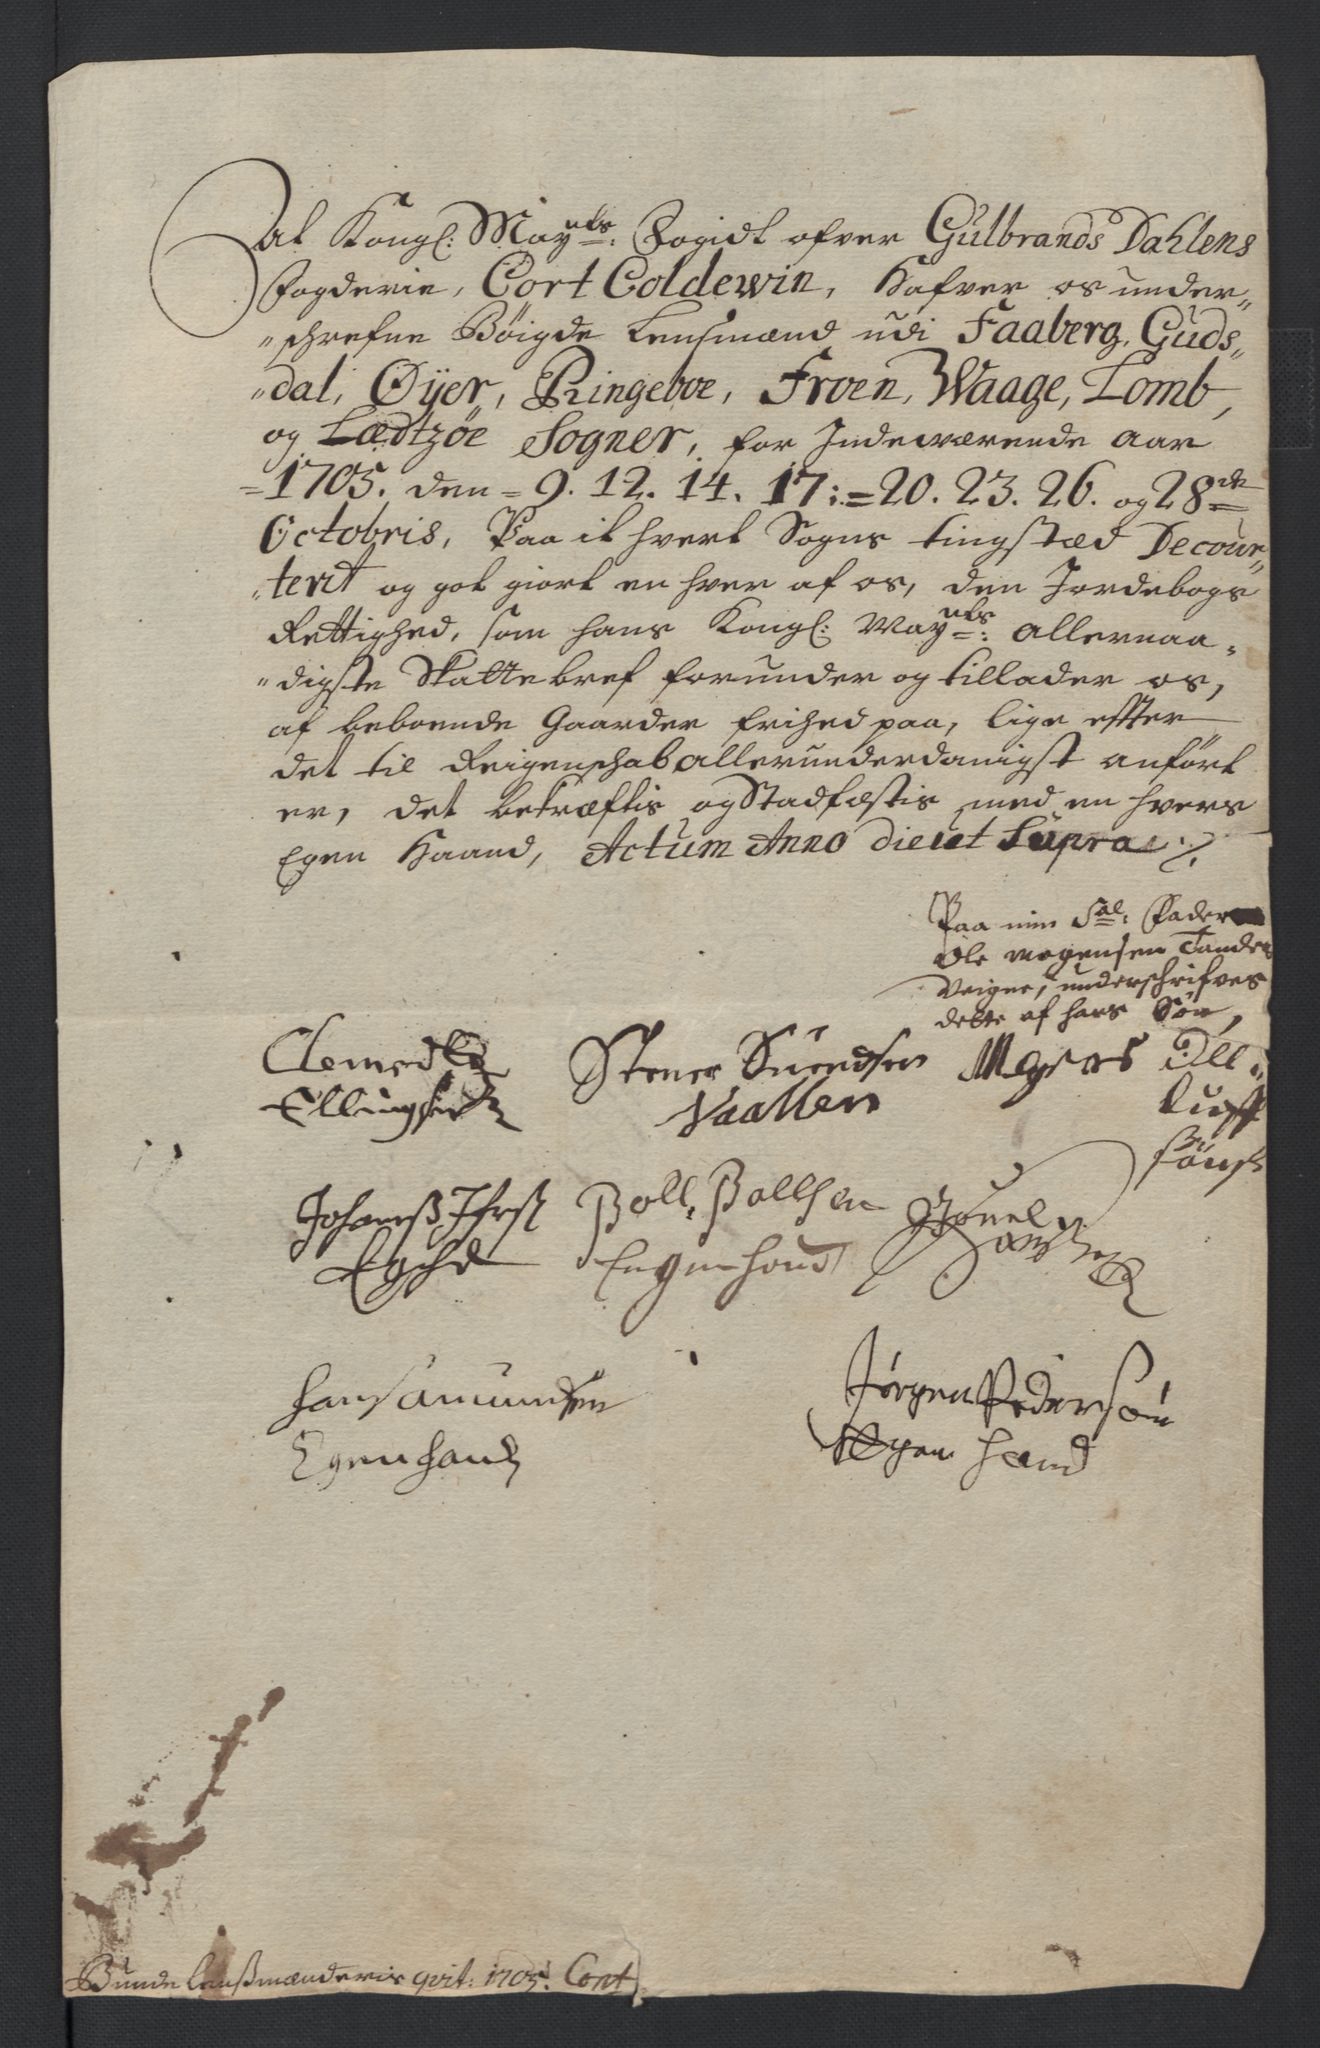 At Kongl: May:ts Fogidt ofver Gulbrands Dahlens
Fogderie, Cort Coldewin, Hafver os under-
-schrefne Böigde Lensmænd udi Faaberg, Guds-
-dal, Øyer, Ringeboe, Froen, Waage, Lomb,
og Lædtzöe Sogner, for Indeværende Aar
=1705. den =9. 12. 14. 17: =20. 23. 26. og 28de
Octobris, Paa it hvert Sogns tingstæd Decour-
-terit og got giort en hver af os, den Jordebogs
Rettighed, som hans Kongl: May:ts allernaa-
-digste Skattebref forunder og tillader os,
af beboende Gaarder frihed paa, lige effter
det til Reigenschab allerunderdanigst anført
er, det bekræftis og Stadfæstis med en hvers
Egen Haand, Actum Anno die ut Supra
Paa min Sal: Fader
Ole Mogensen Tande
Veigne, underschrifves
dette af hans Søn,
Clemed
Ellingsen
Stener Suendsen
Vaallen
Mogens Oll
søn
Johanes
Egh
Boll Bollsen
Eugen hand
Hans Amundsen
Egen hand
Jørgen Pedersøn
Egen Haand
Bunde Lenßmænderis qvit: 1705. Cont